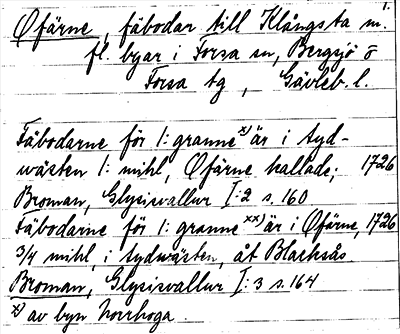 1.
Øfärne, fäbodar till Klångsta m.
fl. byar i Forsa sn, Bergsjö o
Forsa tg, Gävleb. l.
Fäbodarne för 1: granne x) är i syd-
wästen 1: mihl, Øfärne kallade; 1726
Broman, Glysisvallur I:2 s. 160
Fäbodarne för 1: granne xx) är i Øfärne, 1726
3/4 mihl, i sydwästen, åt Blacksås
Broman, Glysisvallur I:3 s. 164
x) av byn Norrhoga